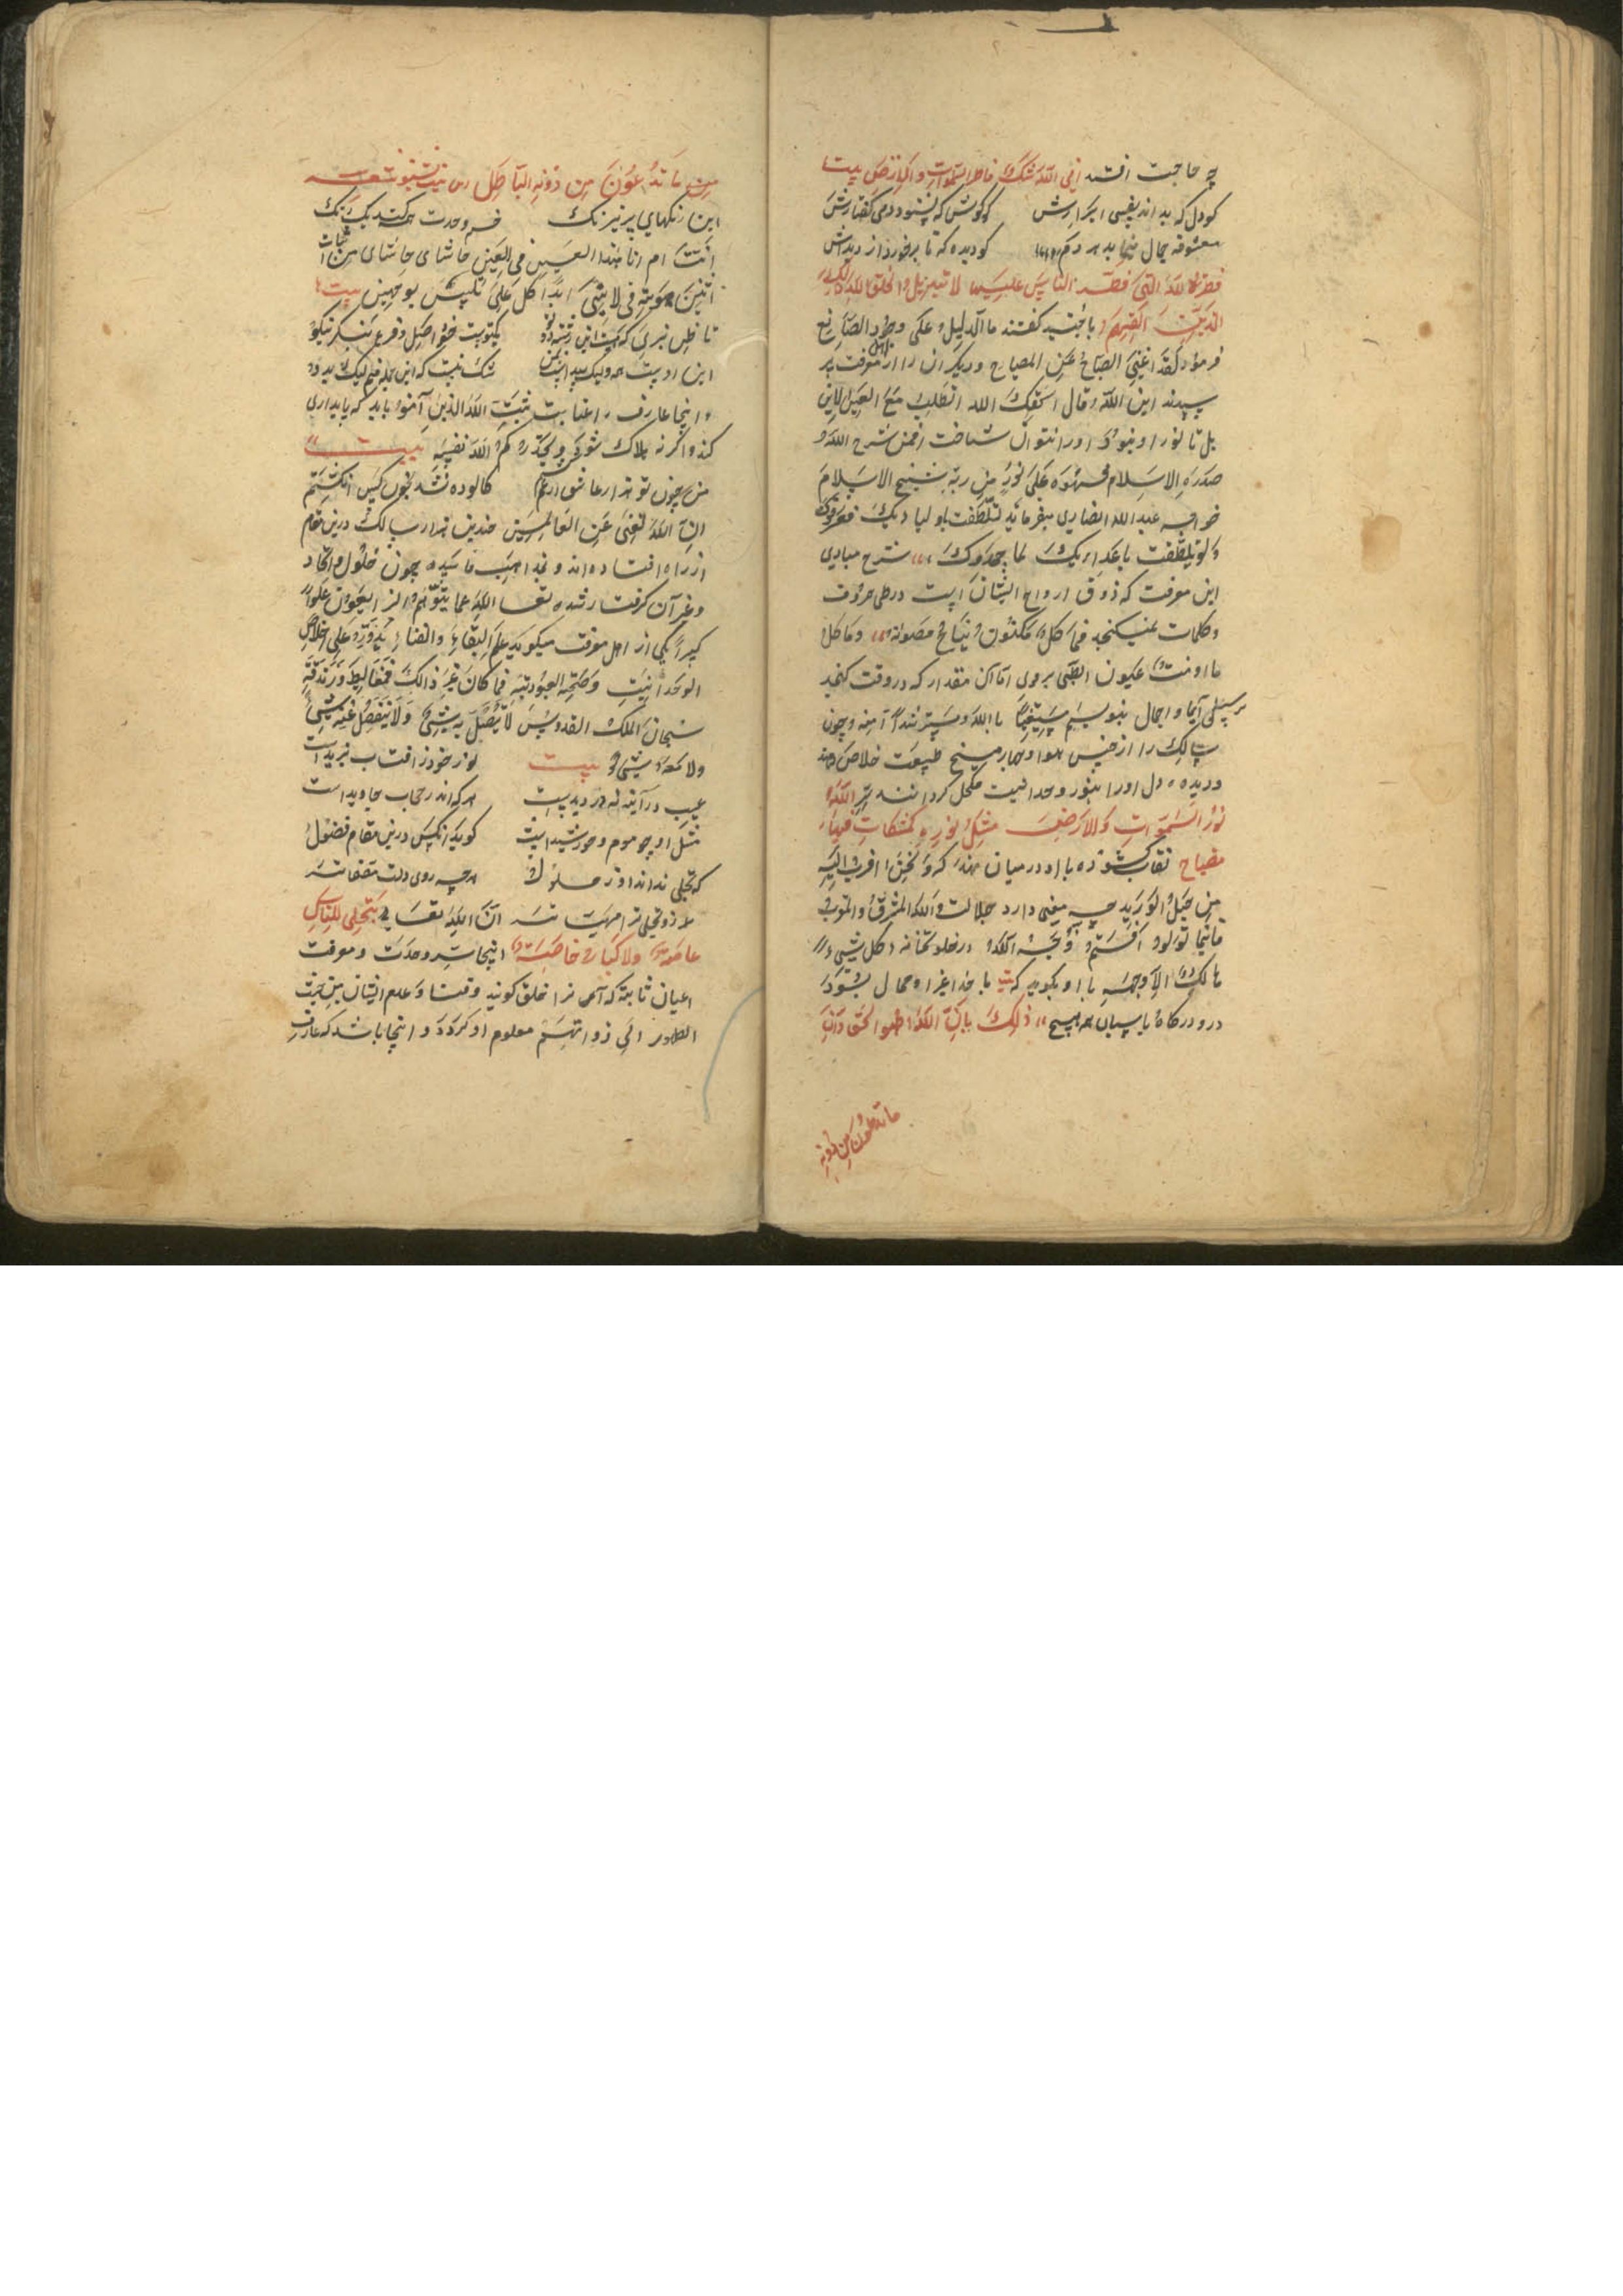 چه حاجت افتد افی الله شک فاطر السموات والارض بیت
کودل که بداند نفسی اسرارش کو گوش که بشنود دمی گفتارش
معشوقه جمال مینماید هر دم کو دیده که تا برخورد از دیدارش
فطرة الله التی فطر الناس علیها لا تبدیل لخلق الله ذلک
الدین القیم با جنید گفتند ما الدلیل علی وجود الصانع
فرمود لقد اغنی الصباح عن المصباح و دیگر ان را از اهل معرفت پر
سیدند این الله قال اسحقک الله اتطلب مع العین لاین
بل تا نور او نبود او را نتوان شناخت افمن شرح الله
صدره للاسلام فهو علی نور من ربه شیخ الاسلام
خواجه عبدالله انصاری میفرماید تلطفت باولیایک فعرفوک
ولو تلطفت باعدایک لما جحدوک شرح مبادی
این معرفت که ذوق ارواح ایشان است در طی حروف
و کلمات نمیگنجد فما کل مکنون یباح مصونه وما کل
ما اومت عیون الظبی یروی اما آن مقدار که در وقت گنجد
بر سبیل ایما و اجمال بنویسم مستعینا بالله و مسترشدا منه و چون
سالک را از حبس هوا و چهار میخ طبیعت خلاص دهند
و دیده دل او را بنور وحدانیت مکحل گردانند سر الله
نور السموات والارض مثل نوره کمشکوة فیها
مصباح نقاب گشوده با او در میان نهند که و نحن اقرب الیه
من حبل الورید چه معنی دارد جلالت ولله المشرق والمغرب
فاینما تولوا فثم وجه الله در خلوتخانه کل شیء
هالک الا وجهه با او بگوید که با خدا غیر او محال بود
در و درگاه پاسبان همه هیچ ذلک بان الله هو الحق وان
ما تدعون من دونه
من ما تدعون من دونه الباطل
این رنگهای پر نیرنگ خم وحدت همه کند یک رنگ
انت ام انا هذا العین فی العین حاشای حاشای من اثبات
اثنین هویة فی لا ییتی ابدا کل علی الکل تلبیس بوجهین بیت
تا ظن نبری که هست این رشته دو تو یکتوست خود اصل و فرع بنگر نیکو
این اوست همه ولیک پیدا است بمن شک نیست که این جمله منم لیک بدو
و اینجا عارف را عنایت یثبت الله الذین آمنوا باید که پایداری
کند و اگرنه هلاک شود و یحذرکم الله نفسه بیت
من چون تو هزار عاشق از غم کشتم کالوده نشد بخون کس انگشتم
ان الله لغنی عن العالمین چندین هزار سالک درین مقام
از راه افتاده اند و بمذاهب فاسده چون حلول و اتحاد
و غیر آن گرفتار شده تعالی الله عما یتوهم الزایغون علوا
کبیرا یکی از اهل معرفت میگوید علم البقا والفنا یدور علی اخلاص
الوحدانیت وصحة العبودیة فما کان غیر ذلک فمغالیط وزندقة
سبحان الملک القدوس لا یتصل به شیء ولا ینفصل عنه شیء
ولا معه شیء بیت نور خود ز افتاب نبریده است
عیب در آینه نه در دیده است هر که اندر حجاب جاوید است
مثل او چو بوم و خورشید است گوید انکس درین مقام فضول
که تجلی نداند او ز حلول هر چه روی دلت مصفاتر
زو تجلی ترا مهیاتر ان الله تعالی یتجلی للناس
عامة ولابی بکر خاصة اینجا سر وحدت و معرفت
اعیان ثابته که آنرا خلق گویند وفنا و عدم ایشان من حیث
الظهور الی ذواتهم معلوم او گردد و اینجا باشد که عارف